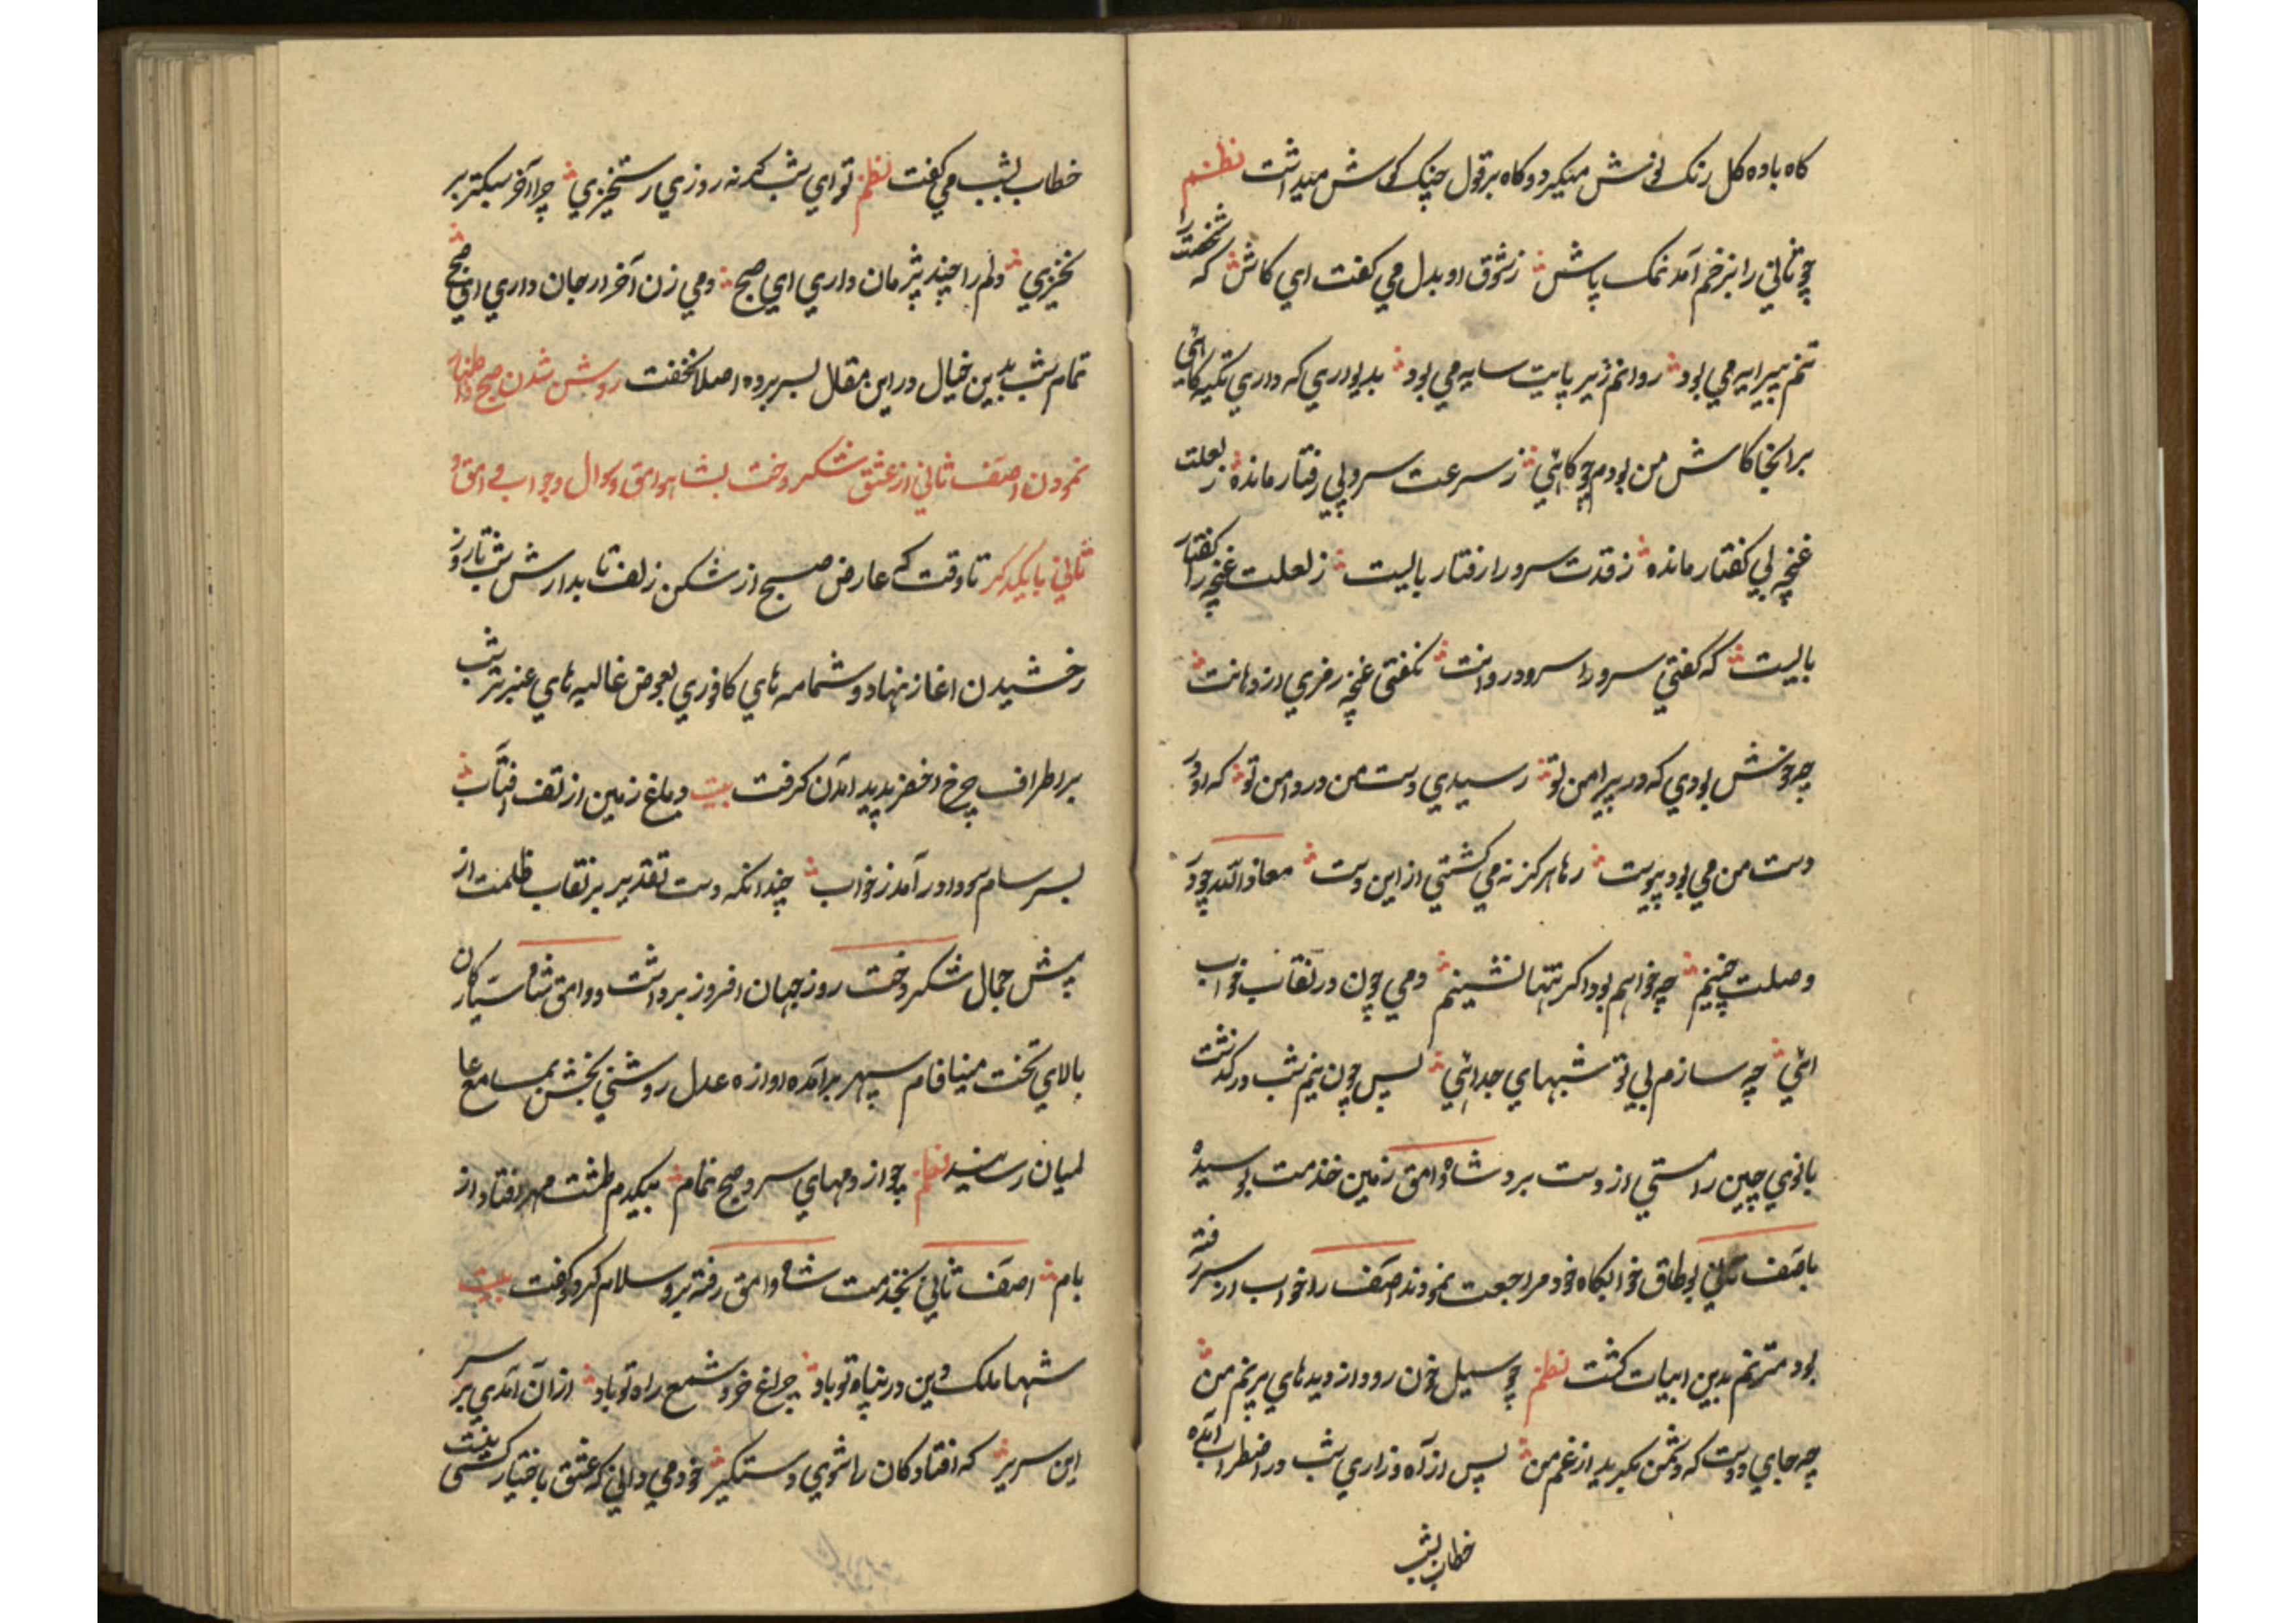 کاه باده کل رنک نوش میکرد و کاه بر قول چنک کوش میداشت نظم
چو ثانی را بزخم آمد نمک پاش ز شوق او بدل می کفت ای کاش که شخصت را
تنم پیرایه می بود روانم زیر پایت سایه می بود بدیواری که داری تکیه کاهی
برانجا کاش من بودم چو کاهی ز سرعت سرو بی رفتار مانده ز لعلت
غنچه بی کفتار مانده ز قدت سرو را رفتار بایست ز لعلت غنچه را کفتار
بایست که کفتی سرو را سرو روانت نکفتی غنچه رمزی از دهانت
چه خوش بودی که در پیرامن تو رسیدی دست من در دامن تو که او در
دست من می بود پیوست رها هرکز نه می کشتی از این دست معاذ الله چو در
وصلت چنینم چه خواهم بود اکر تنها نشینم دمی چون در نقاب خواب
ائی چه سازم بی تو شبهای جدائی پس چون نیم شب در کذشت
بانوی چین راستی از دست برد شاه وامق زمین خدمت بوسیده
باصف ثانی بوطاق خوابکاه خود مراجعت نمودند اصف را خواب از سر رفته
بود مترنم بدین ابیات کشت نظم چو سیل خون رود از دیدهای پرنم من
چه جای دوست که دشمن بکرید از غم من پس از آه و زاری شب در اضطراب آمده
خطاب بشب
خطاب بشب می کفت نظم تو ای شب کر نه روزی رستخیزی چرا آخر سبکتر بر
نخیزی دلم را چند پژمان داری ای صبح دمی زن آخر ار جان داری ای صبح
تمام شب بدین خیال در این مقال بسر برده اصلا نخفت روشن شدن صبح و اظهار
نمودن اصف ثانی از عشق شکر دخت بشاه وامق و سوال و جواب وامق و
ثانی با یکدکر تا وقت که عارض صبح از شکن زلف تابدارش شب تا روز
رخشیدن اغاز نهاد و شمامه های کافوری بعوض غالیه های عنبر تر شب
بر اطراف چرخ اخضر پدید آمدن کرفت بیت دماغ زمین از تف افتاب
بسرسام سودا در آمد ز خواب چندانکه دست تقدیر بر نقاب ظلمت از
پیش جمال شکر دخت روز جهان افروز برداشت و وامق شاه سیارکان
بالای تخت مینا فام سپهر برآمده اوازه عدل روشنی بخش بمسامع عا
لمیان رسانید نظم چو از دمهای سرد صبح نمام بیکدم طشت مهر افتاد از
بام اصف ثانی بخدمت شاه وامق رفته برو سلام کرد و کفت بیت
شها ملک و دین در پناه تو باد چراغ خرد شمع راه تو باد از آن آمدی بر سر
این سریر که افتادکان را شوی دستکیر خود می دانی که عشق باختیار کسی نیست